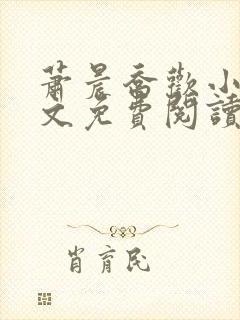 蕭晨喬歡小
文免費閱讀
肖育民